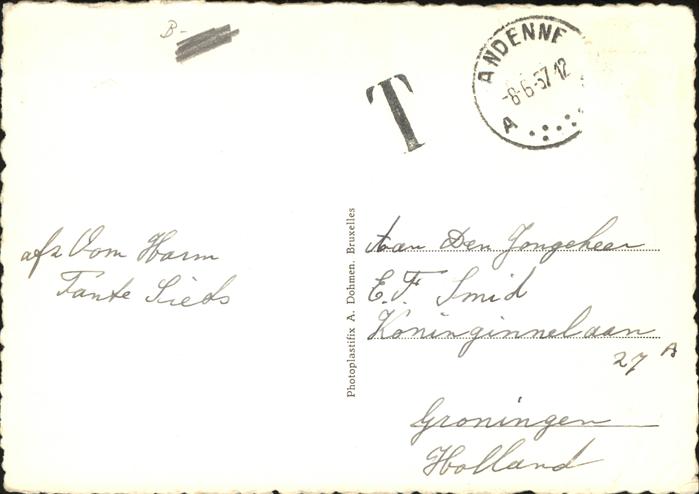 B-
ANDENNE
-8-6-57 12
A
T
afz Oom Harm
Tante Sieds
Photoplastifix A. Dohmen. Bruxelles
Aan Den Jongeheer
E. F. Smid
Koninginnelaan
27 A
Groningen
Holland